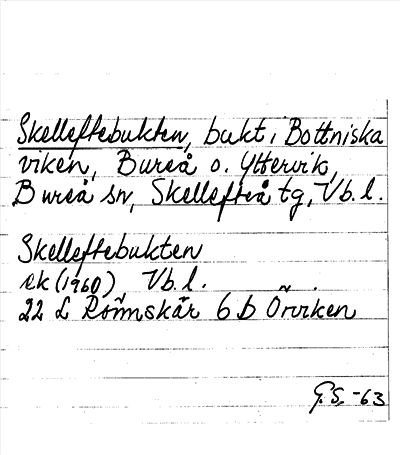 Skelleftebukten, bukt i Bottniska
viken, Bureå o. Yttervik,
Bureå sn, Skellefteå tg, Vb. l.
Skelleftebukten
ek (1960) Vb. l.
22 L Rönnskär 6 b Örviken
G.S. -63